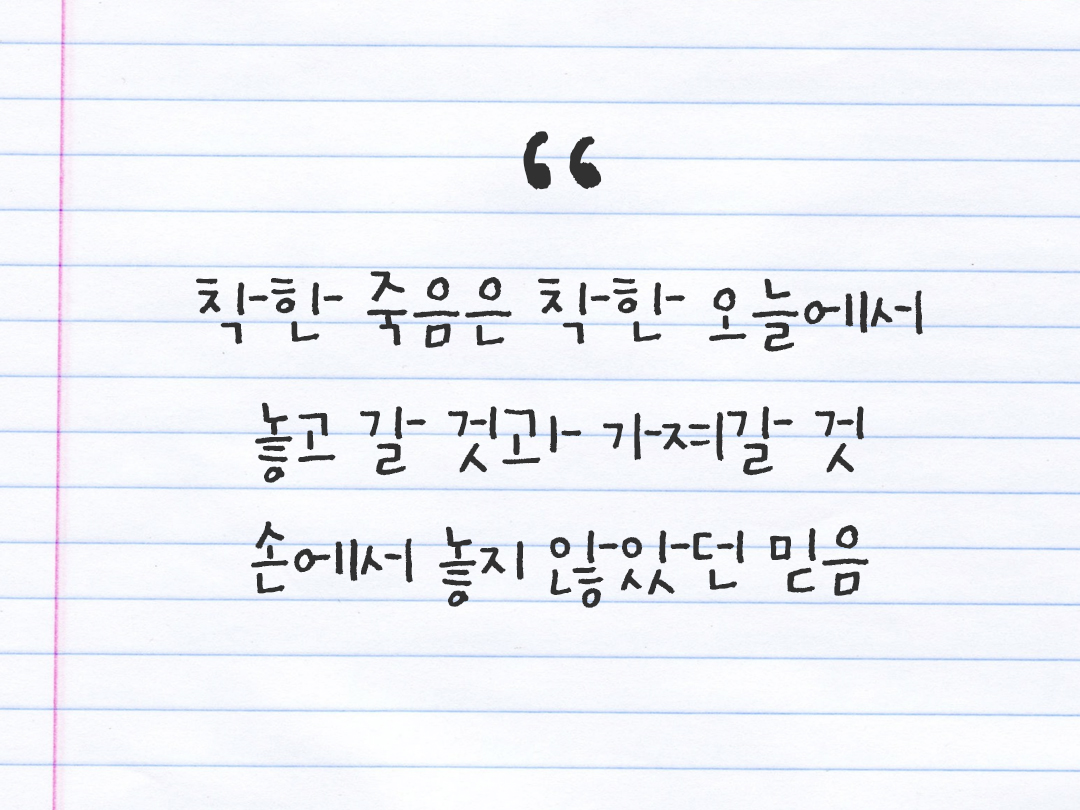 “
착한 죽음은 착한 오늘에서
놓고 갈 것과 가져갈 것
손에서 놓지 않았던 믿음